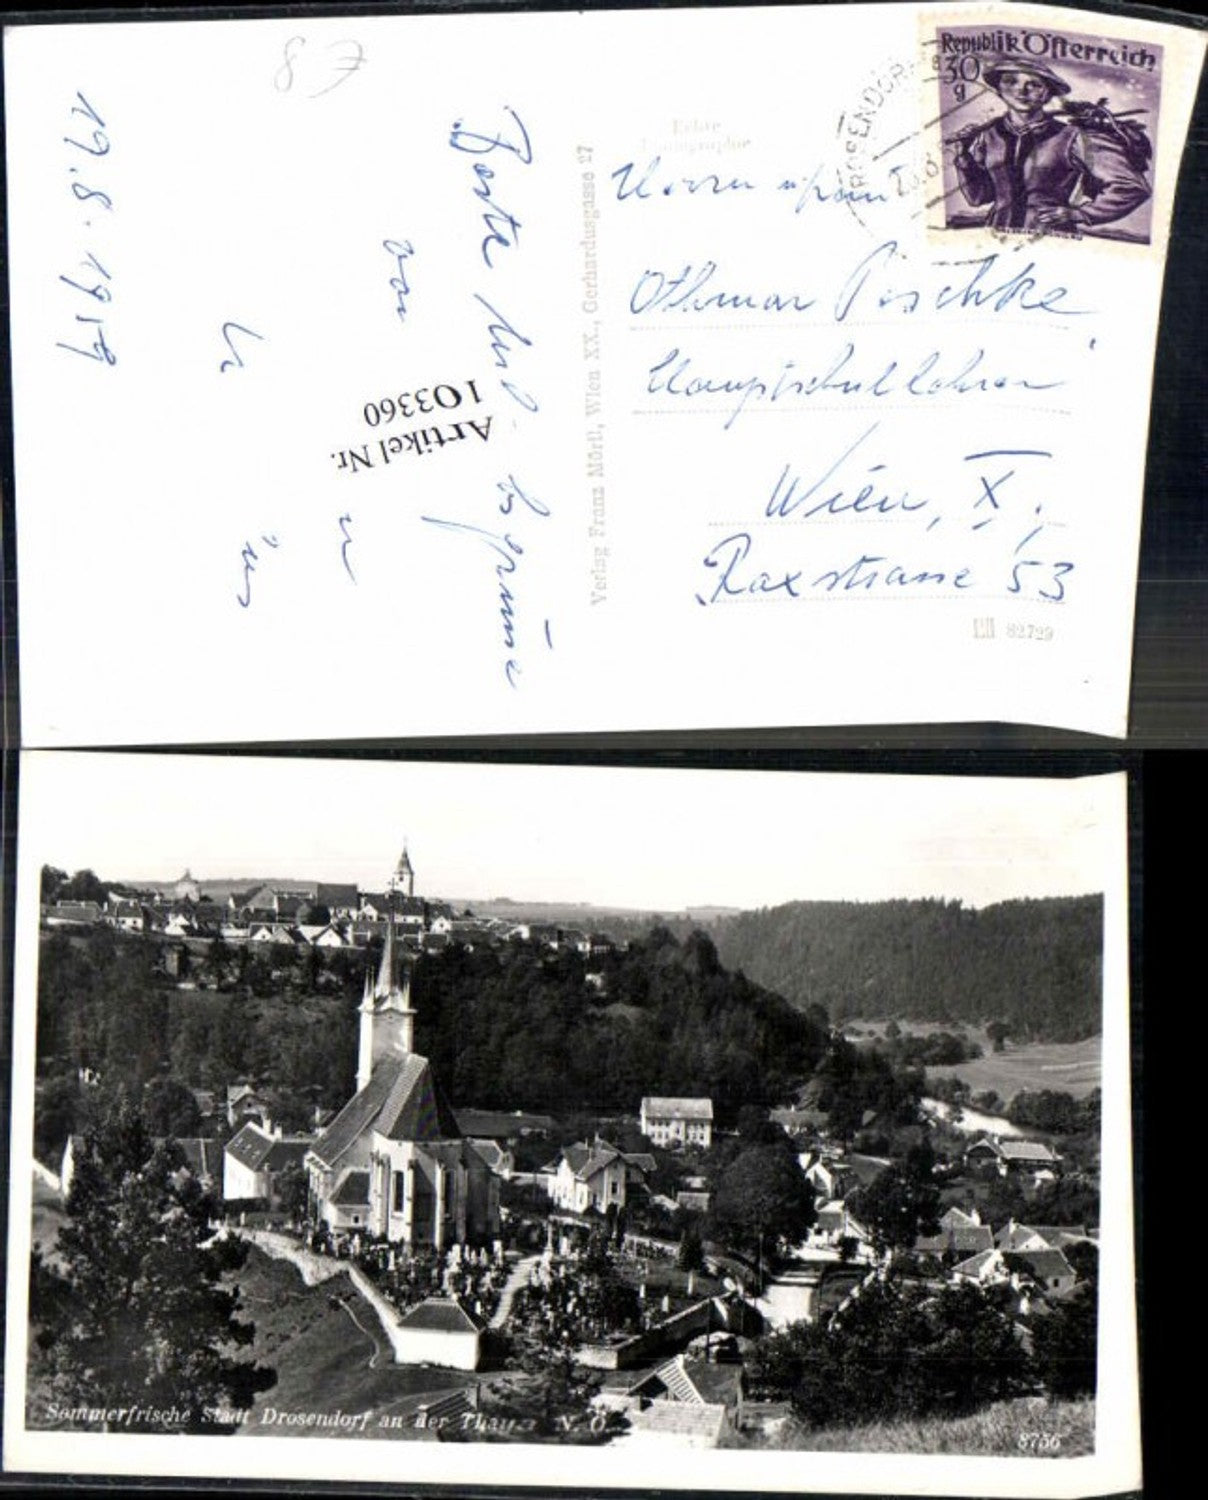 Republik Österreich
30
g
DROSENDORF
Echte
Photographie
€ 8
19. 8. 1959
Beste
von
Artikel Nr.
1 O3360
Verlag Franz Mörtl, Wien XX., Gerhardusgasse 27
Herrn
Othmar Peschke,
Hauptschullehrer
Wien, X.,
Raxstrasse 53
82729
Sommerfrische Stadt Drosendorf an der Thaya N. Ö.
8756